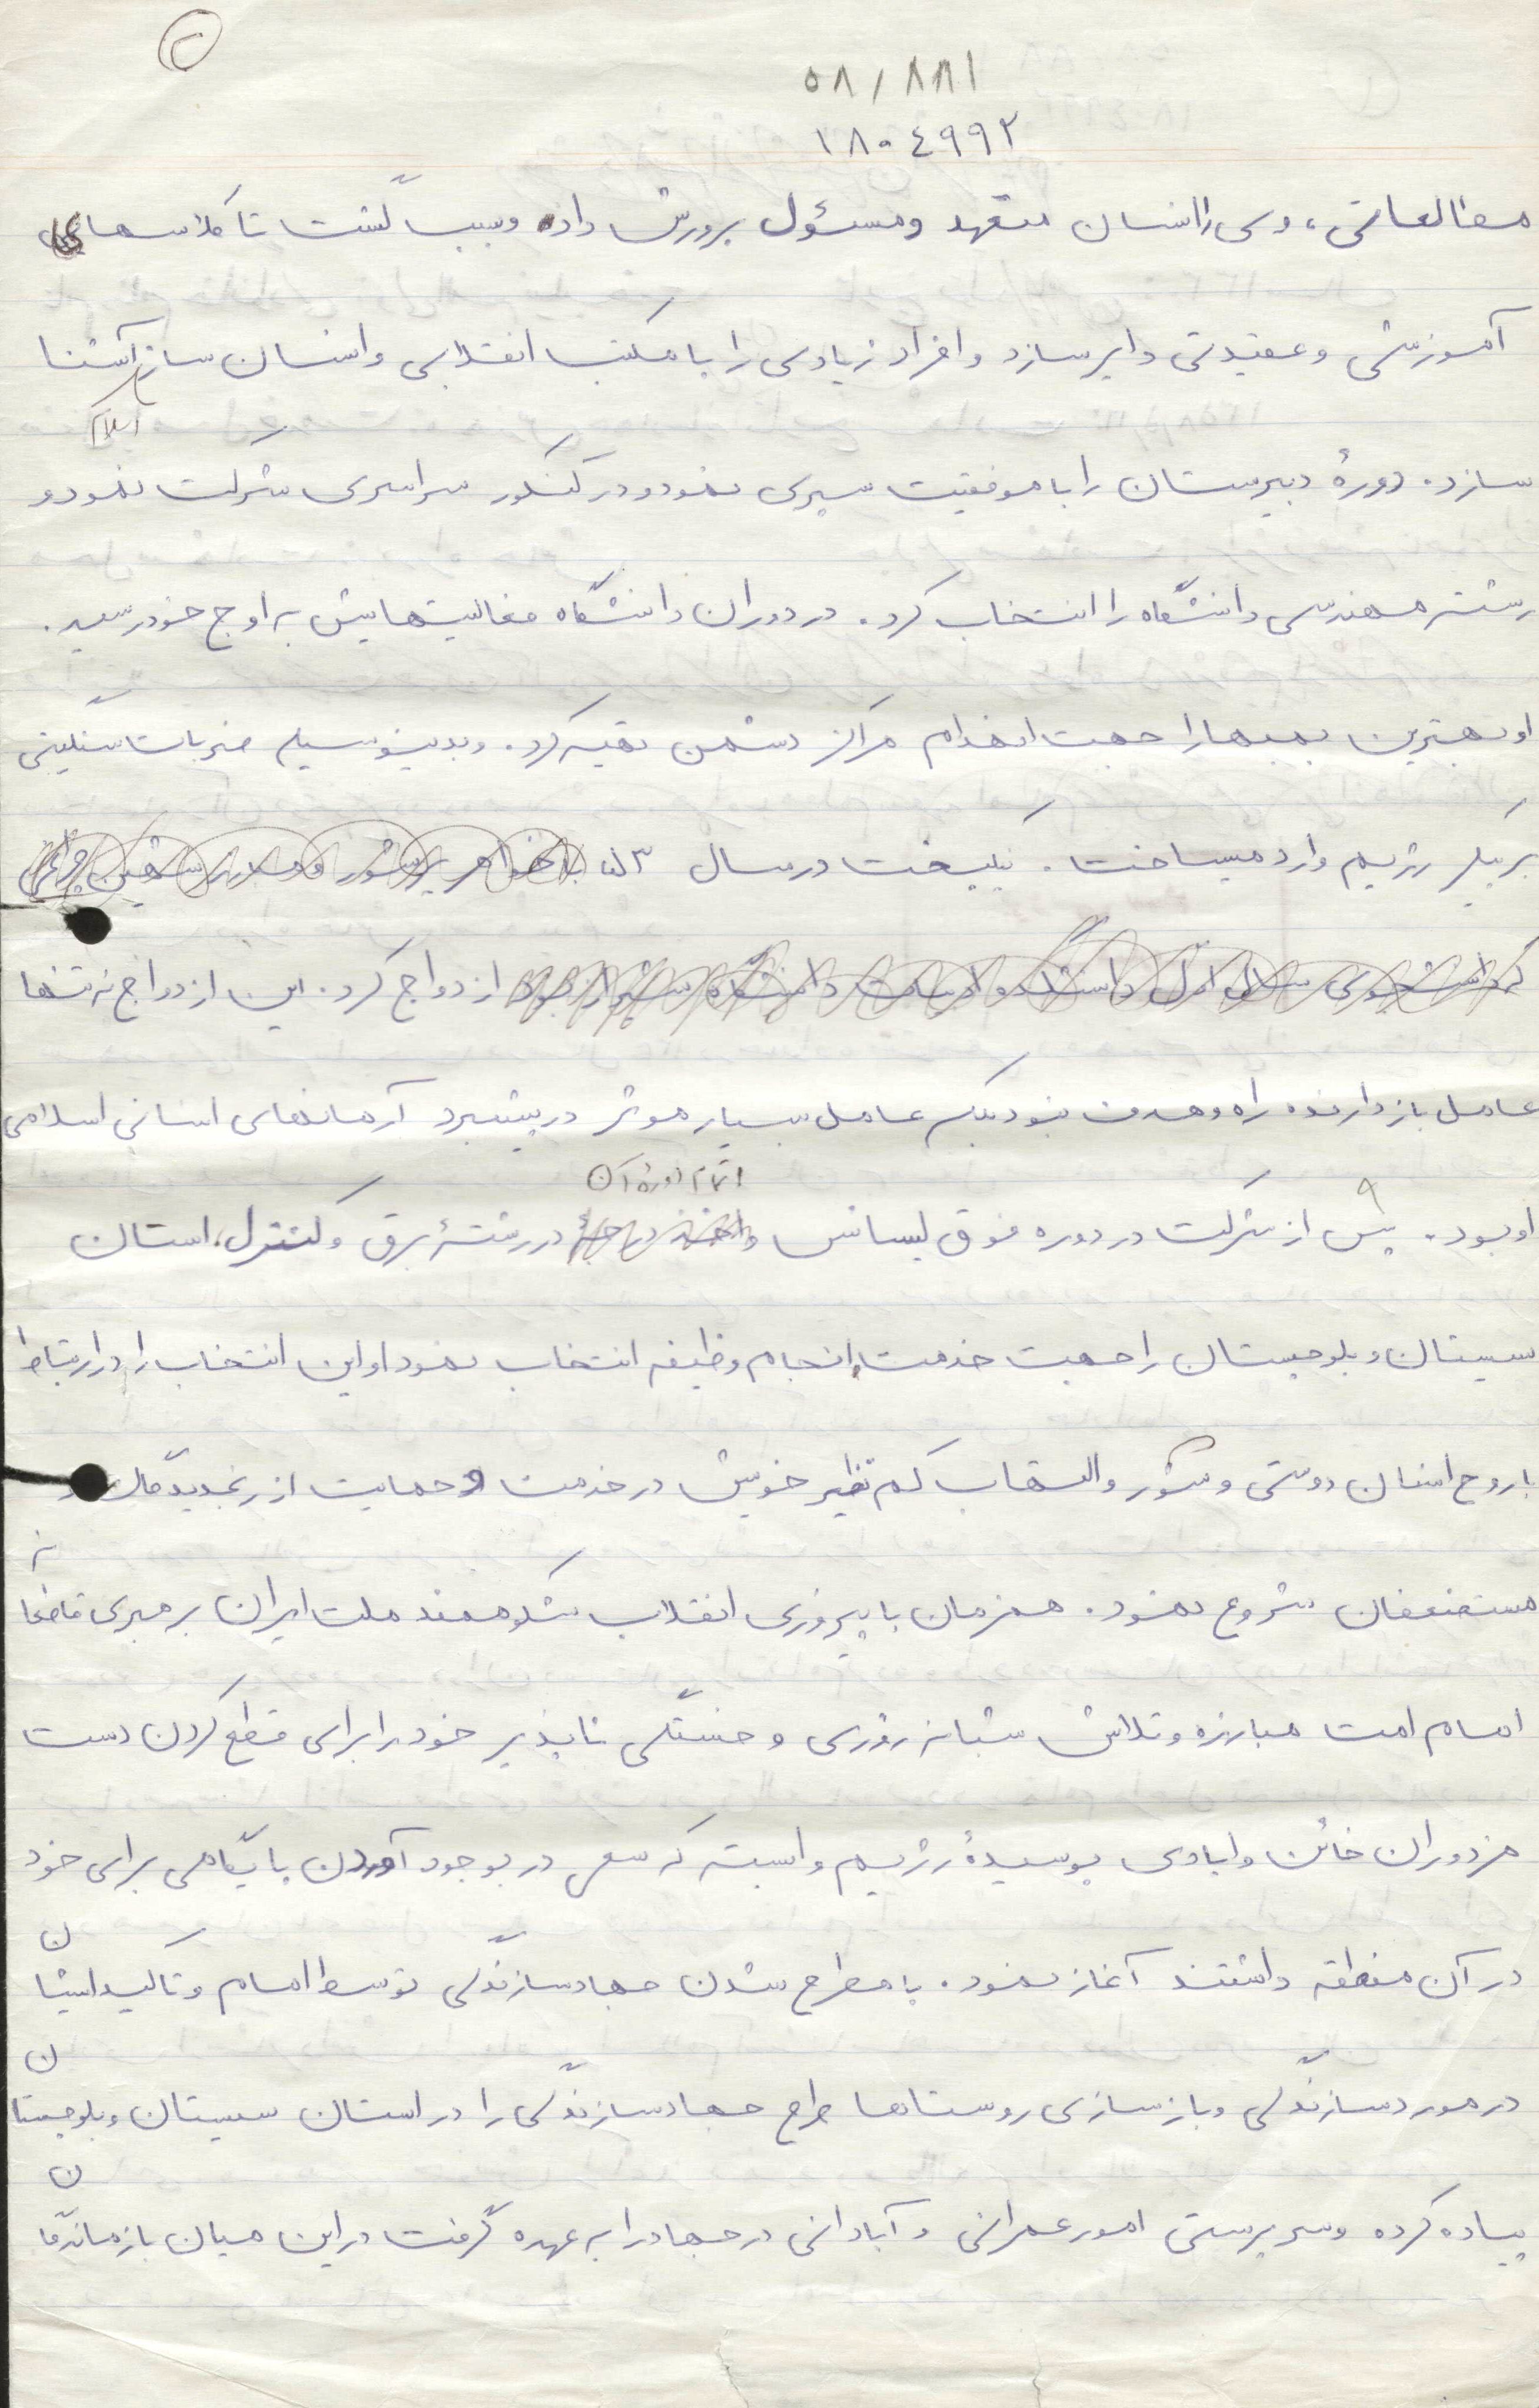 ۲
۵۸/۸۸۱
۱۸۰٤۹۹۲
مطالعاتی، وی را انسان متعهد و مسئول پرورش داد و سبب گشت تا کلاسهای
آموزشی و عقیدتی دایر سازد و افراد زیادی را با مکتب انقلابی و انسان ساز اسلام آشنا
سازد. دورهٔ دبیرستان را با موفقیت سپری نمود و در کنکور سراسری شرکت نمود و
رشته مهندسی دانشگاه را انتخاب کرد. در دوران دانشگاه فعالیتهایش به اوج خود رسید.
او بهترین بمبها را جهت انهدام مراکز دشمن تهیه کرد. و بدینوسیله ضربات سنگینی
بر پیکر رژیم وارد میساخت. نیکبخت در سال ۵۳ با خواهر پرشور
ازدواج کرد. این ازدواج نه تنها
عامل بازدارنده راه و هدف نبود بلکه عامل بسیار موثر در پیشبرد آرمانهای انسانی اسلامی
او بود. پس از شرکت در دوره فوق لیسانس و اتمام دوره آن در رشتهٔ برق و کنترل، استان
سیستان و بلوچستان را جهت خدمت انجام وظیفه انتخاب نمود او این انتخاب را در ارتباط
با روح انسان دوستی و شور و التهاب کم نظیر خویش در خدمت و حمایت از رنجدیدگان و
مستضعفان شروع نمود. همزمان با پیروزی انقلاب شکوهمند ملت ایران برهبری قاطعانه
امام امت مبارزه و تلاش شبانه روزی و خستگی ناپذیر خود را برای قطع کردن دست
مزدوران خائن و ایادی پوسیدهٔ رژیم وابسته که سعی در بوجود آوردن پایگاهی برای خود
در آن منطقه داشتند آغاز نمود. با مطرح شدن جهاد سازندگی توسط امام و تاکید ایشان
در مورد سازندگی و بازسازی روستاها طرح جهاد سازندگی را در استان سیستان و بلوچستان
پیاده کرده و سرپرستی امور عمرانی و آبادانی در جهاد را به عهده گرفت در این میان بازماندگان